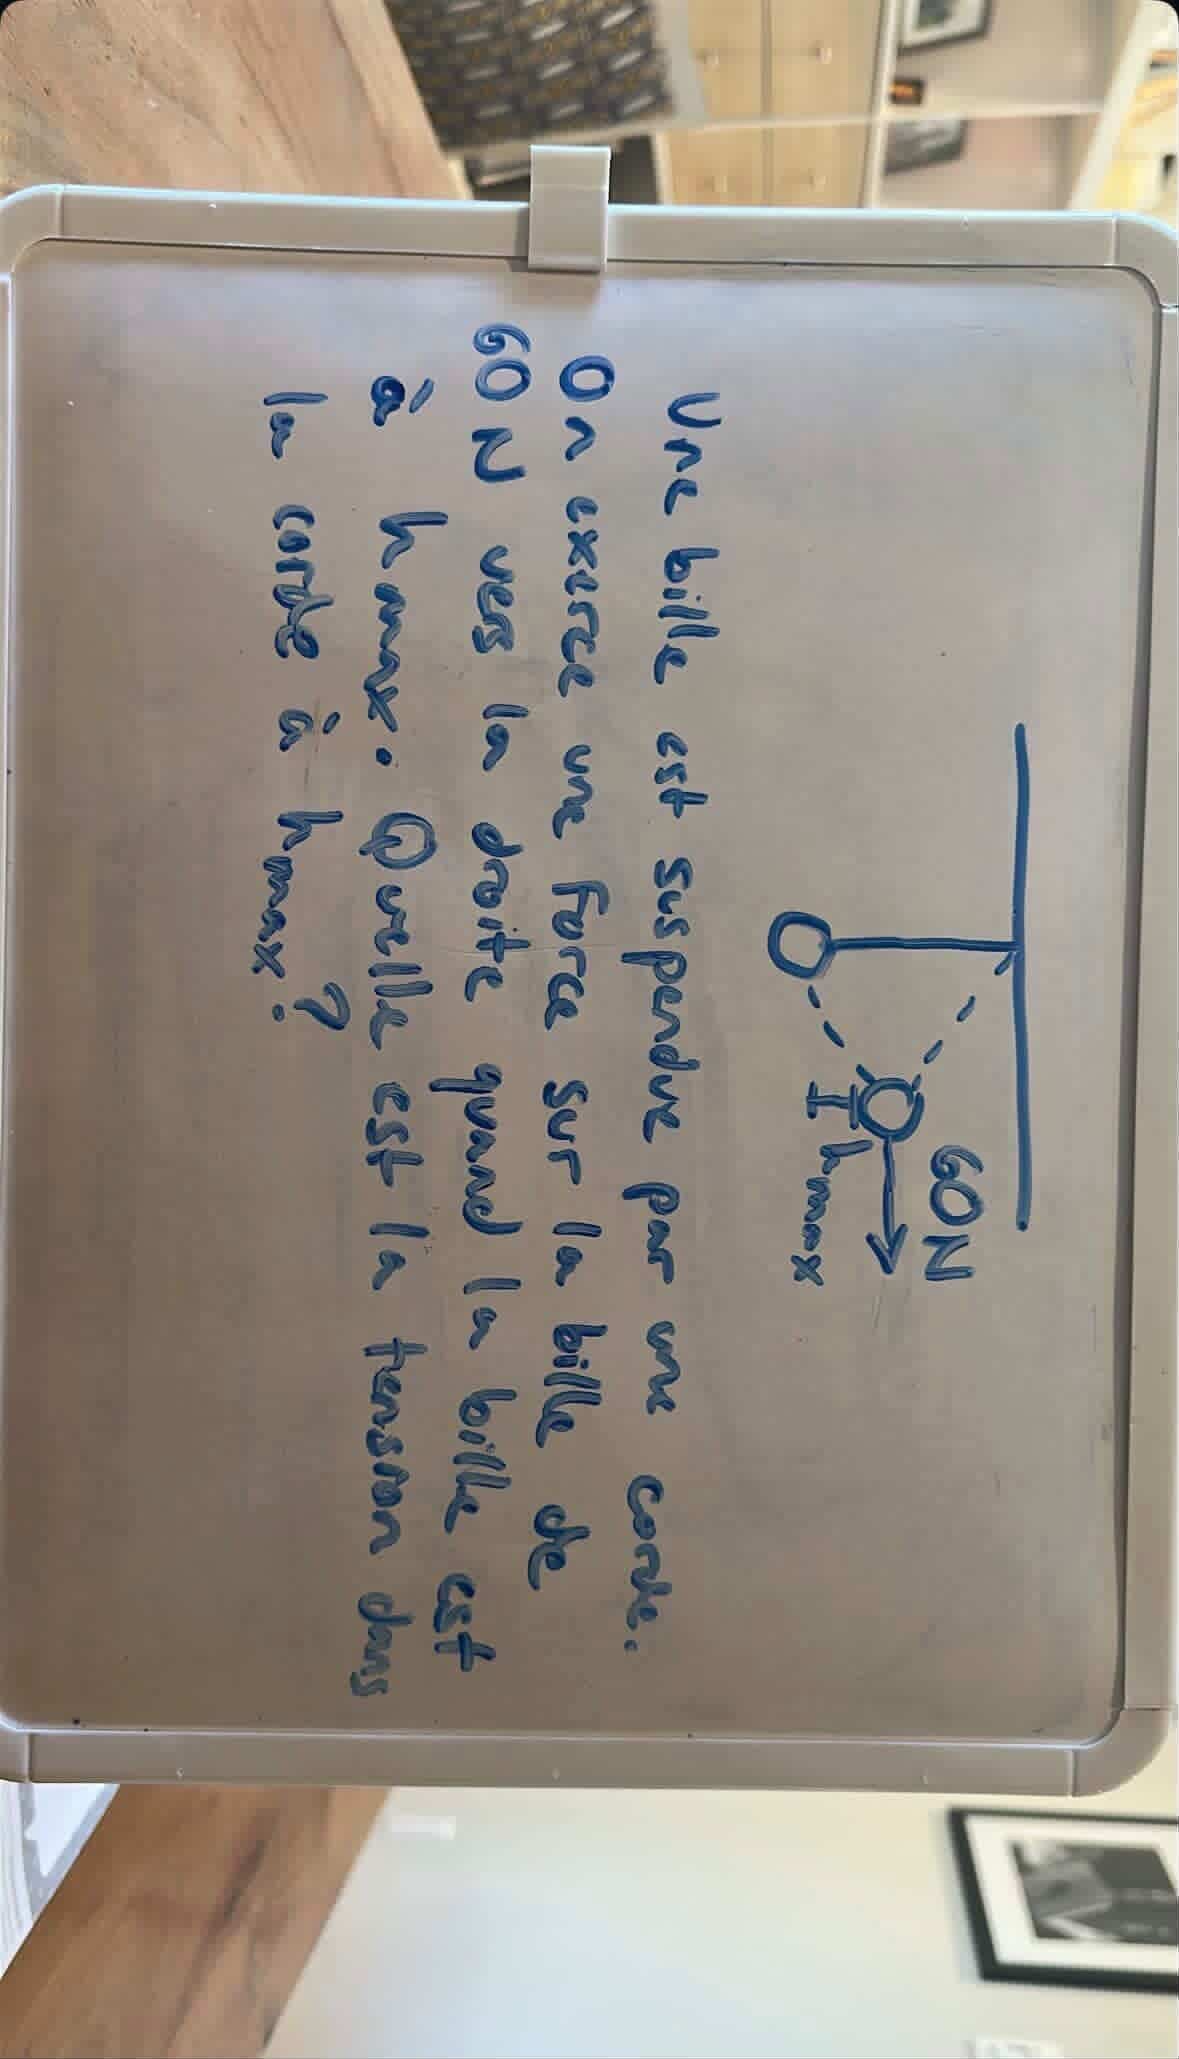 60N
hmax
Une bille est suspendue par une corde.
On exerce une force sur la bille de
60 N vers la droite quand la bille est
à hmax. Quelle est la tension dans
la corde à hmax?